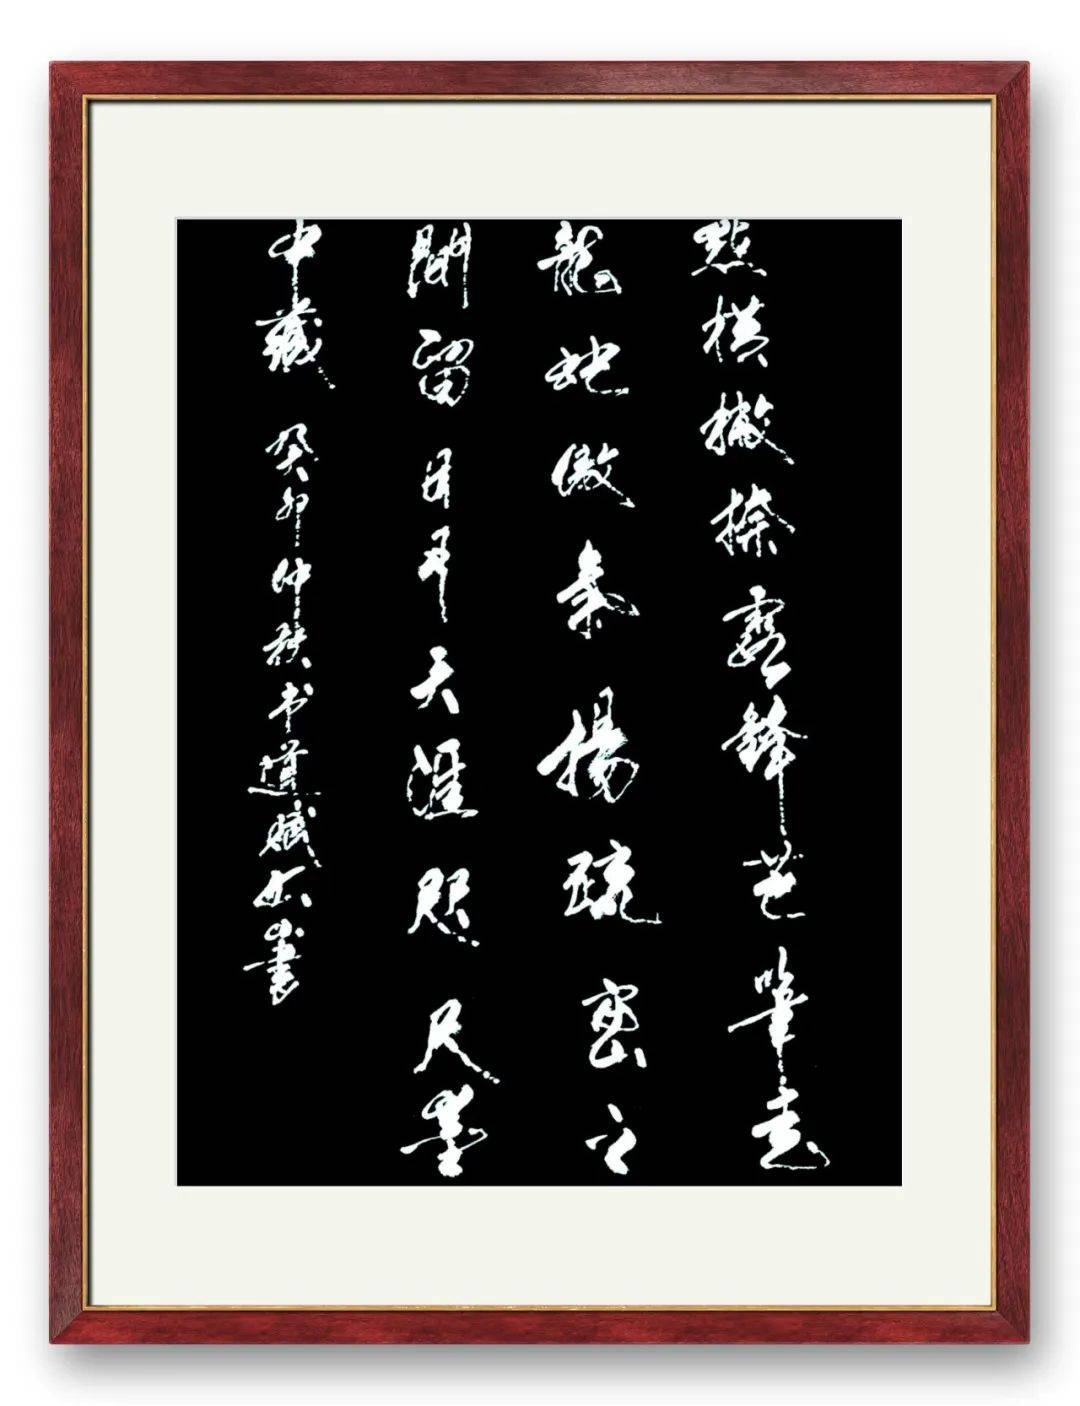 點橫撇捺露鋒芒筆走
龍蛇傲氣揚疏密之
間留日月天涯咫尺墨
中藏 癸卯仲秋书道